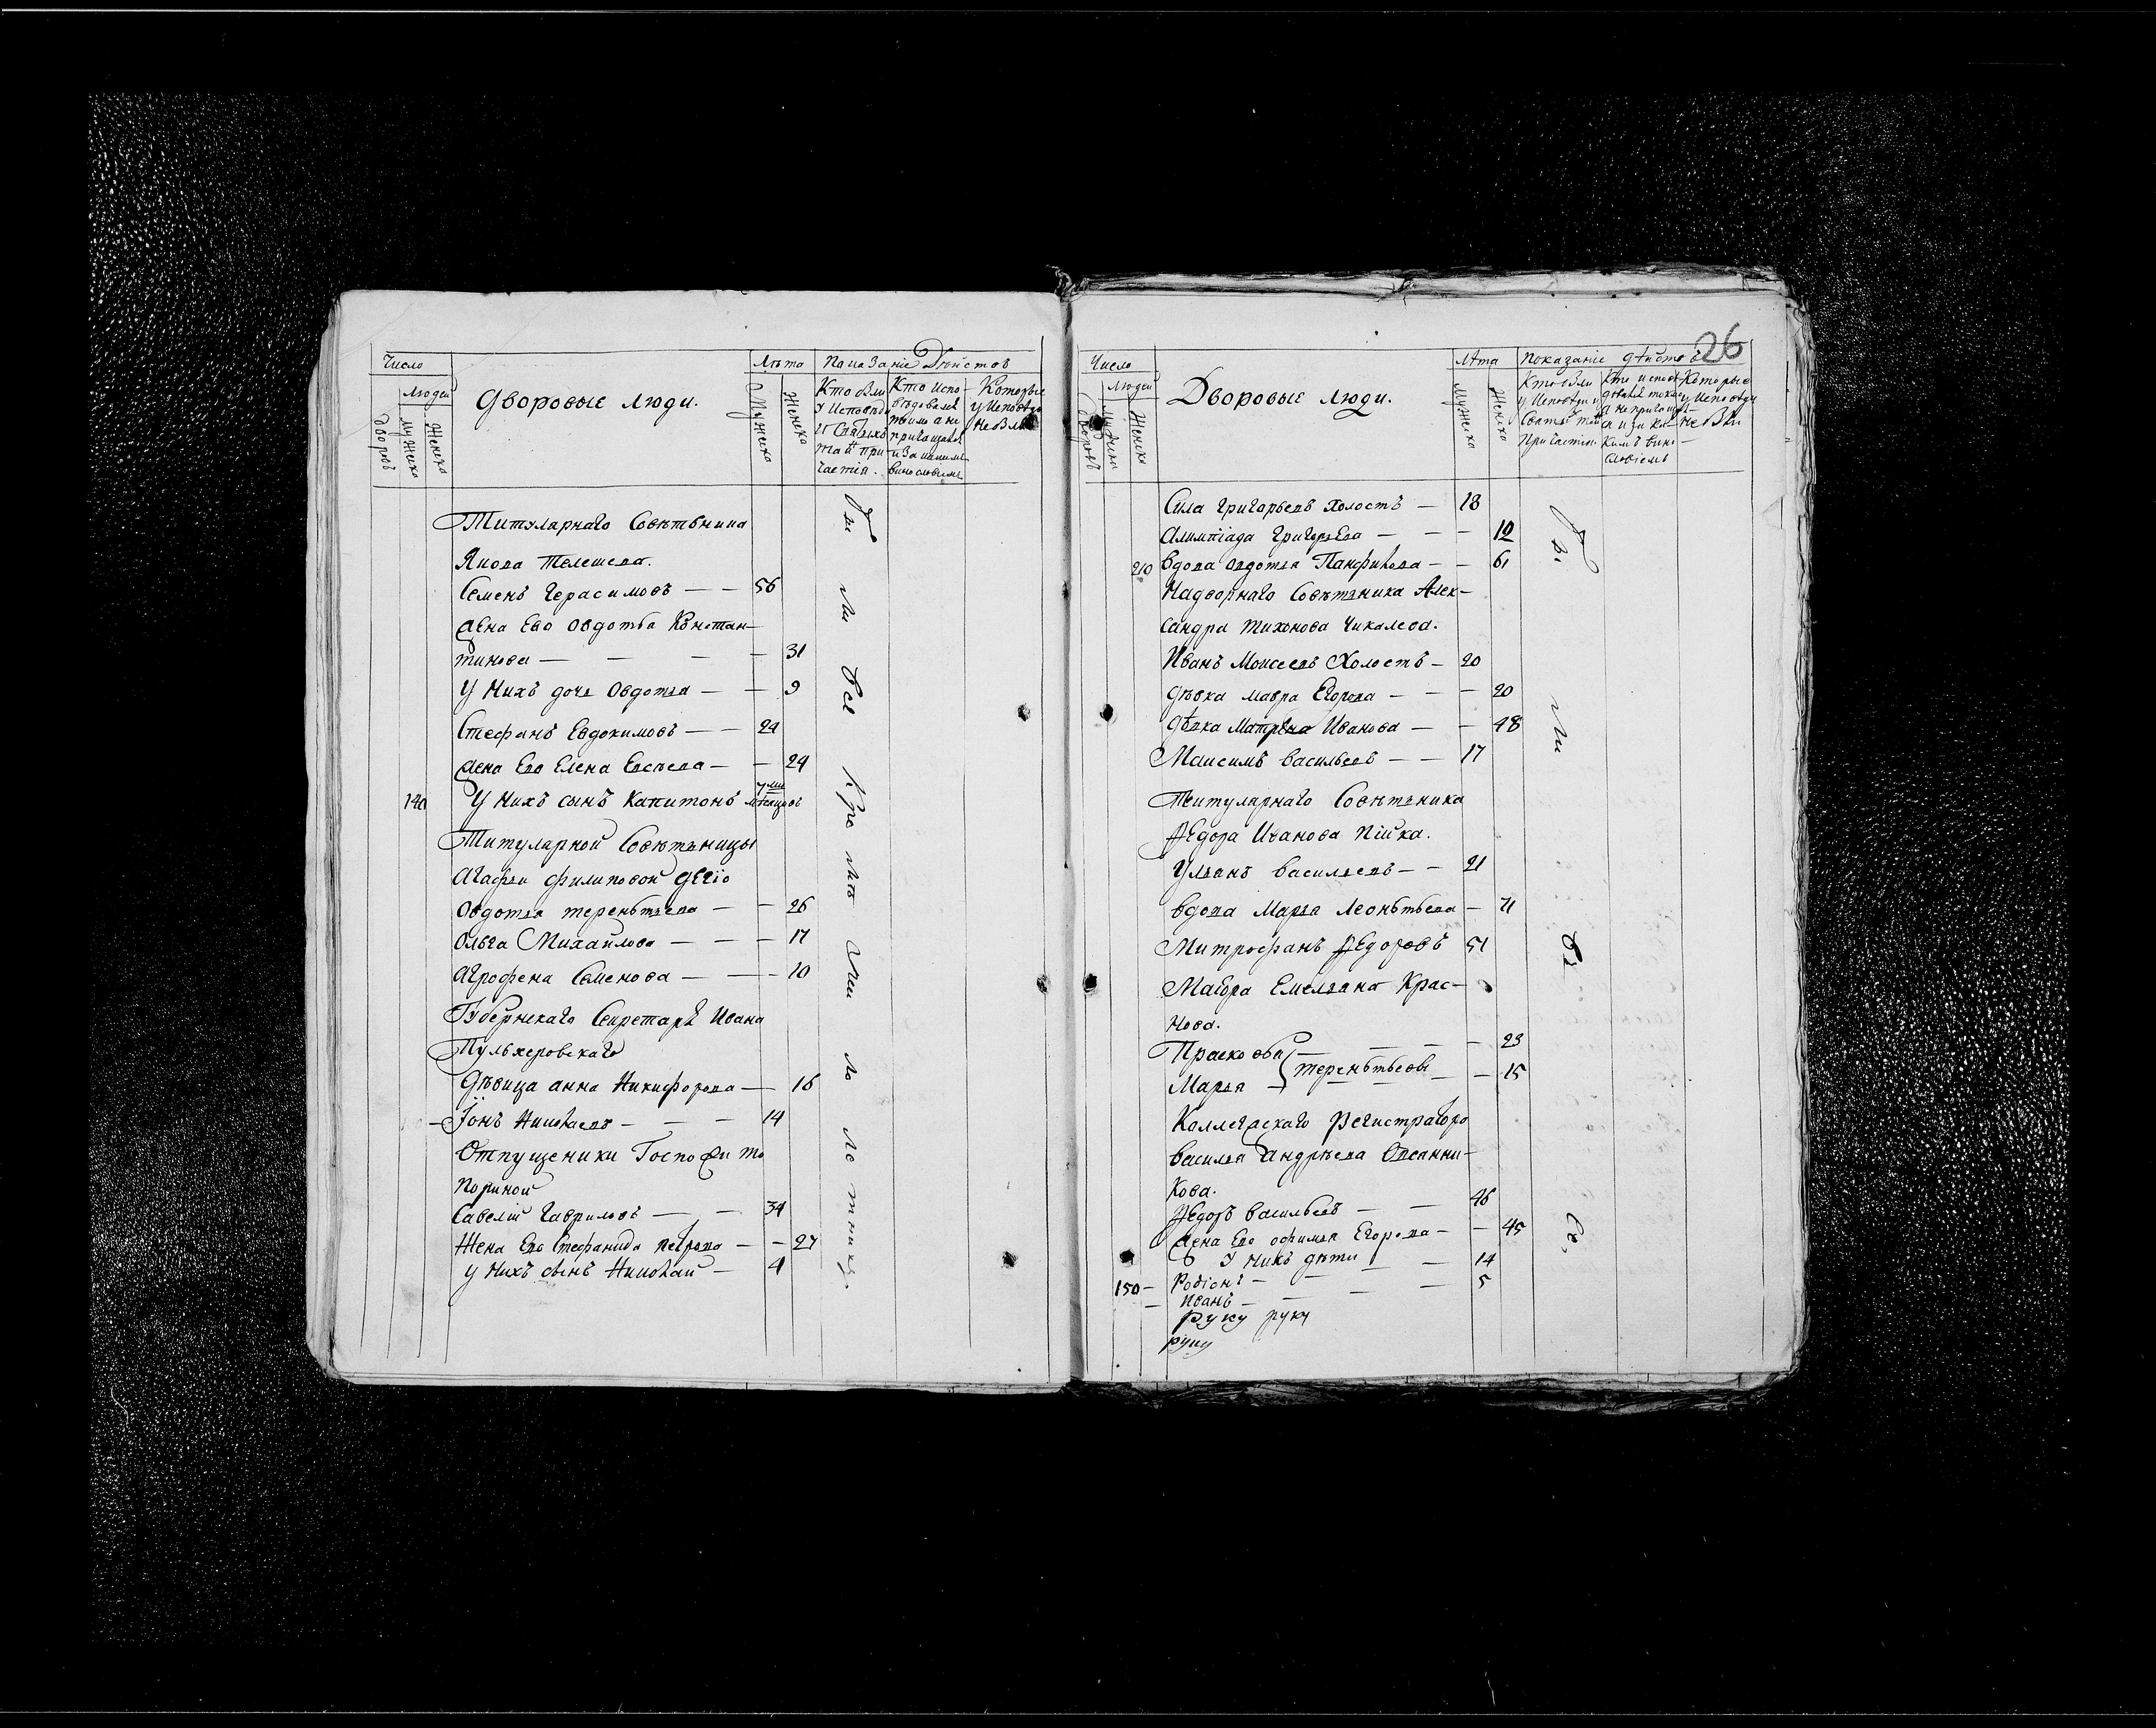 Число
Людей
Дворовъ
Мужеско
Женско
Дворовые люди.
Лѣта
Мужеско
Женско
Показаніе Дѣйствъ
Кто были
у Исповѣди
и Святыхъ
Таинъ при-
частія.
Кто испо-
вѣдовался
токмо а не
причащался
и за какимъ
винословіемъ
Которые
у Исповѣди
не были
Титулярнаго Совѣтьника
Якова Телешева.
Семенъ Герасимовъ — — 56
Жена Ево Овдотья Констан-
тинова — — — — 31
У Нихъ дочь Овдотья — — 9
Стефанъ Евдокимовъ — — 24
Жена Ево Елена Евсѣева — — 24
140 У Нихъ сынъ Капитонъ мѣсяцовъ
Титулярной Совѣтьницы
Агафьи Филиповой
Овдотья Терентьева — — 26
Ольга Михайлова — — — 17
Агрофена Семенова — — — 10
Губернскаго Секретаря Ивана
Пульхеровскаго
Дѣвица Анна Никифорова — 16
— Іонъ Николаевъ — — — 14
Отпущеники Госпожи То
пориной
Савелій Гавриловъ — — 34
Жена Ево Стефанида Петрова — — 27
у Нихъ сынъ Николай — 4
Бы
ли
все
кро
мѣ
ма
ло
ле
тныхъ.
26
Число
Людей
Дворовъ
Мужеско
Женско
Дворовые люди.
Лѣта
Мужеско
Женско
Показаніе дѣйствъ
Кто были
у Исповѣди и
Святыхъ Таинъ
Причастія
Кто исповѣ-
довался токмо
а не причащал-
ся и за ка-
кимъ вино-
словіемъ
Которые
у Исповѣди
не бы
Сила Григорьевъ Холостъ — 18
Алимпіада Григорьева — — — 12
210 Вдова Овдотья Панфилова — — 61
Надворнаго Совѣтьника Алек-
сандра Тихонова Чикалева.
Иванъ Моисеевъ Холостъ — 20
Дѣвка Мавра Егорова — — — 20
Дѣвка Матрена Иванова — — 48
Максимъ Васильевъ — — 17
Титулярнаго Совѣтьника
Ѳедора Иванова Пійка.
Ульянъ Васильевъ — — 21
Вдова Марья Леонтьева — 71
Митрофанъ Ѳедоровъ 51
Маіора Емельяна Крас-
нова.
Прасковья — — — — 23
Марья — Терентьевы — — 15
Коллежскаго Регистратора
Василья Андрѣева Овсянни-
кова.
Ѳедоръ Васильевъ — — 46
Жена Ево Офимья Егорова — — 45
У Нихъ дѣти
150 — Родіонъ — — — 14
— Иванъ — — — — 5
Руку руку
руку
Бы
ли
Вс